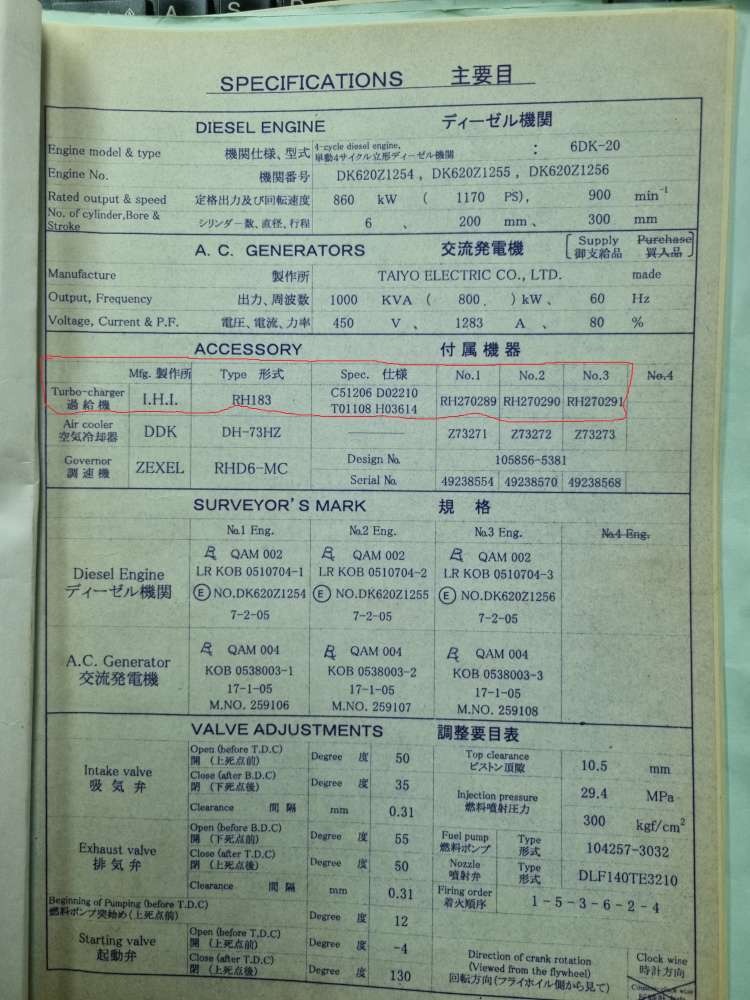 A S
SPECIFICATIONS 主要目
DIESEL ENGINE ディーゼル機関
Engine model & type 機関仕様、型式 4-cycle diesel engine, 単動4サイクル立形ディーゼル機関 : 6DK-20
Engine No. 機関番号 DK620Z1254 , DK620Z1255 , DK620Z1256
Rated output & speed 定格出力及び回転速度 860 kW ( 1170 PS), 900 min-1
No. of cylinder,Bore & Stroke シリンダー数、直径、行程 6 、 200 mm、 300 mm
A. C. GENERATORS 交流発電機 Supply 御支給品 Purchase 買入品
Manufacture 製作所 TAIYO ELECTRIC CO., LTD. made
Output, Frequency 出力、周波数 1000 KVA ( 800 . ) kW、 60 Hz
Voltage, Current & P.F. 電圧、電流、力率 450 V 、 1283 A 、 80 %
ACCESSORY 付属機器
Mfg. 製作所 Type 形式 Spec. 仕様 No.1 No.2 No.3 No.4
Turbo-charger 過給機 I.H.I. RH183 C51206 D02210 T01108 H03614 RH270289 RH270290 RH270291
Air cooler 空気冷却器 DDK DH-73HZ Z73271 Z73272 Z73273
Governor 調速機 ZEXEL RHD6-MC Design No. 105856-5381
Serial No. 49238554 49238570 49238568
SURVEYOR'S MARK 規格
No.1 Eng. No.2 Eng. No.3 Eng. No.4 Eng.
Diesel Engine ディーゼル機関
QAM 002 QAM 002 QAM 002
LR KOB 0510704-1 LR KOB 0510704-2 LR KOB 0510704-3
E NO.DK620Z1254 E NO.DK620Z1255 E NO.DK620Z1256
7-2-05 7-2-05 7-2-05
A.C. Generator 交流発電機
QAM 004 QAM 004 QAM 004
KOB 0538003-1 KOB 0538003-2 KOB 0538003-3
17-1-05 17-1-05 17-1-05
M.NO. 259106 M.NO. 259107 M.NO. 259108
VALVE ADJUSTMENTS 調整要目表
Intake valve 吸気弁
Open (before T.D.C) 開 (上死点前) Degree 度 50
Close (after B.D.C) 閉 (下死点後) Degree 度 35
Clearance 間隔 mm 0.31
Exhaust valve 排気弁
Open (before B.D.C) 開 (下死点前) Degree 度 55
Close (after T.D.C) 閉 (上死点後) Degree 度 50
Clearance 間隔 mm 0.31
Beginning of Pumping (before T.D.C) 燃料ポンプ突始め (上死点前) Degree 度 12
Starting valve 起動弁
Open (before T.D.C) 開 (上死点前) Degree 度 -4
Close (after T.D.C) 閉 (上死点後) Degree 度 130
Top clearance ピストン頂隙 10.5 mm
Injection pressure 燃料噴射圧力 29.4 MPa
300 kgf/cm2
Fuel pump 燃料ポンプ Type 形式 104257-3032
Nozzle 噴射弁 Type 形式 DLF140TE3210
Firing order 着火順序 1 - 5 - 3 - 6 - 2 - 4
Direction of crank rotation (Viewed from the flywheel) 回転方向(フライホイル側から見て)
Clock wise 時計方向